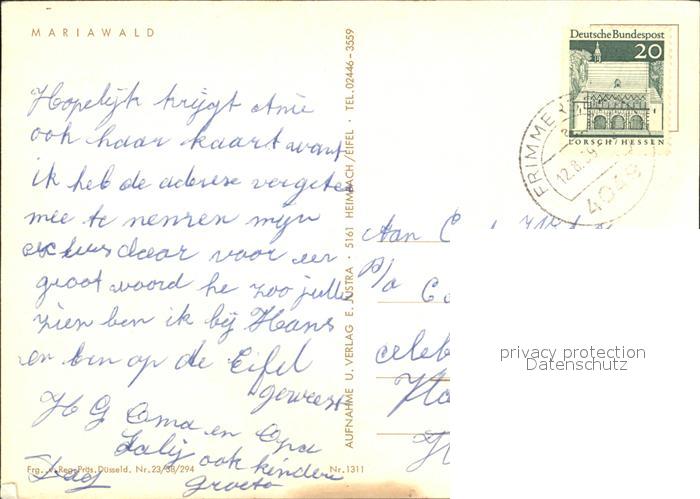 MARIAWALD
Hopelijk krijgt Anie
ook haar kaart want
ik heb de aderese vergeten
mee te nemen mijn
daar voor een
groot woord he zoo jullie
zien ben ik bij Hans
en ben op de Eifel
geweest
H G Oma en Opa
ook kindere
Dag Groeta
Frg. v. Reg.-Präs. Düsseld. Nr. 23/38/294
Nr. 1311
AUFNAHME U. VERLAG E. JUSTRA · 5161 HEIMBACH/EIFEL · TEL. 02446-3559
Deutsche Bundespost
20
LORSCH/HESSEN
FRIMMER
12.8.
4049
Aan
p/o
celeb
privacy protection
Datenschutz